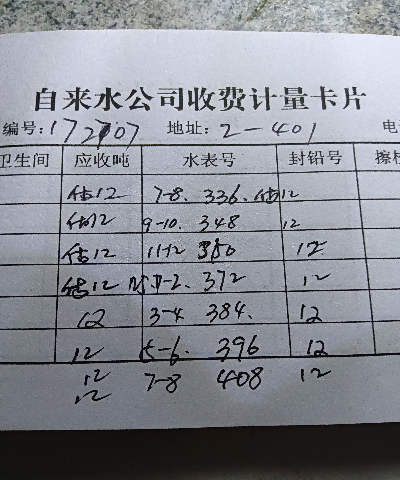 自来水公司收费计量卡片
编号:172707 地址:2-401
卫生间 应收吨 水表号 封铅号
估12 7-8. 336. 估12
估12 9-10. 348 12
估12 11-12 360 12
估12 1-2. 372 12
12 3-4 384. 12
12 5-6. 396 12
12 7-8 408 12
12